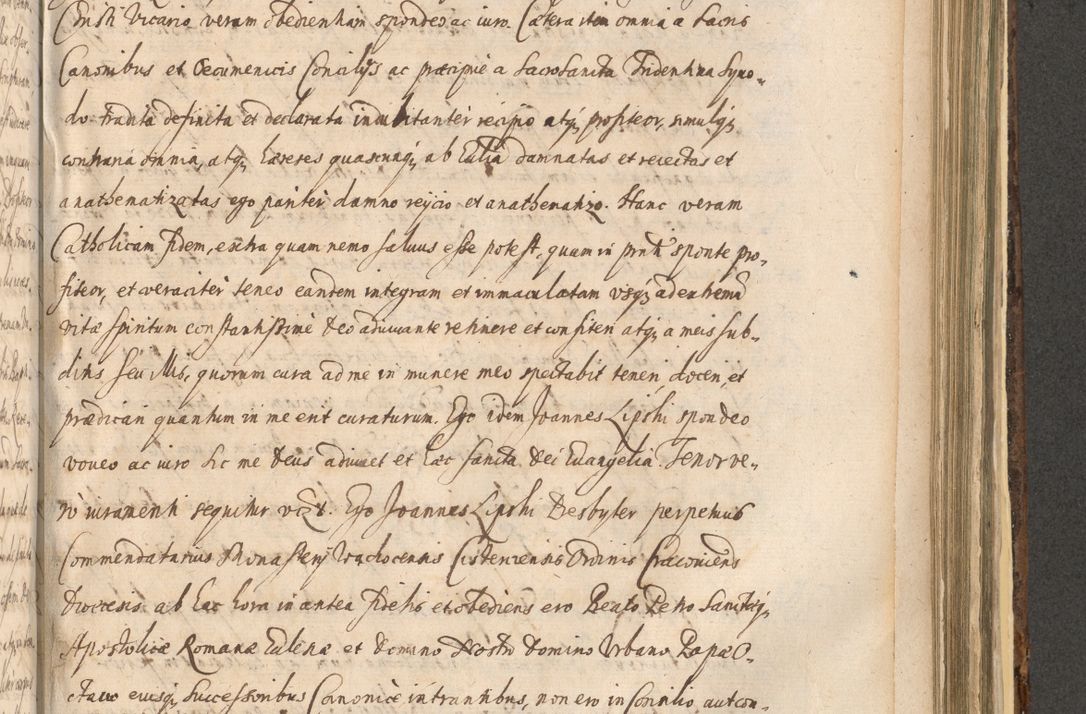 Christi Vicario, veram obedientiam spondeo ac iuro. Cætera item omnia a Sacris
Canonibus et Oecumenicis Concilijs ac præcipuè a Sacrosancta Tridentina Syno-
do tradita definita et declarata indubitanter recipio atq3 profiteor, simulq3
contraria omnia, atq3 hæreses quascunq3 ab Ecclia damnatas et reiectas et
anathematizatas ego pariter damno reijcio et anathematizo. Hanc veram
Catholicam fidem, extra quam nemo saluus esse potest, quam in prnti sponte pro-
fiteor, et veraciter teneo eandem integram et immaculatam vsq3 ad extremū
vitæ spiritum constantissimè Deo adiuuante retinere et confiteri atq3 a meis sub-
ditis seu illis, quorum cura ad me in munere meo spectabit teneri, doceri, et
prædicari quantum in me erit curaturum. Ego idem Joannes Lipski spondeo
voueo ac iuro sic me Deus adiuuet et hæc sancta Dei Euangelia. Tenor ve-
rò iuramenti sequitur Ego Joannes Lipski Presbyter perpetuus
Commendatarius Monasterij Wachocensis Cisterciensis Ordinis Cracouiensis
Dioecesis ab hac hora in antea fidelis et obediens ero Beato Petro Sanctæq3
Apostolicæ Romanæ Ecclesiæ et Domino Nostro Domino Vrbano Papæ O-
ctauo eiusq3 Successoribus Canonicè intrantibus, non ero in Consilio, aut con-